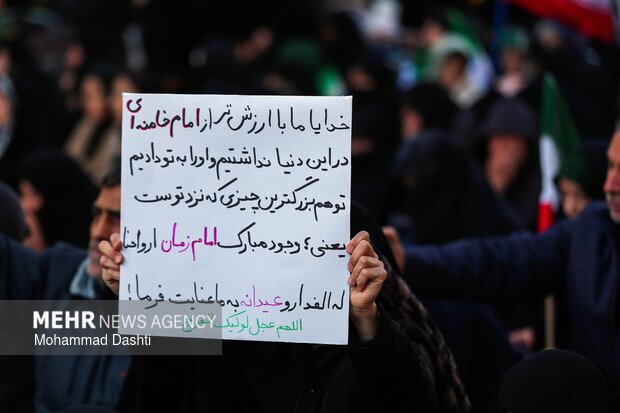 خدایا ما با ارزش تر از امام خامنه ای
در این دنیا نداشتیم و او را به تو دادیم
تو هم بزرگترین چیزی که نزد توست
یعنی؛ وجود مبارک امام زمان ارواحنا
له الفدا رو عیدانه به ما عنایت فرما!
اللهم عجل لولیک
MEHR NEWS AGENCY
Mohammad Dashti